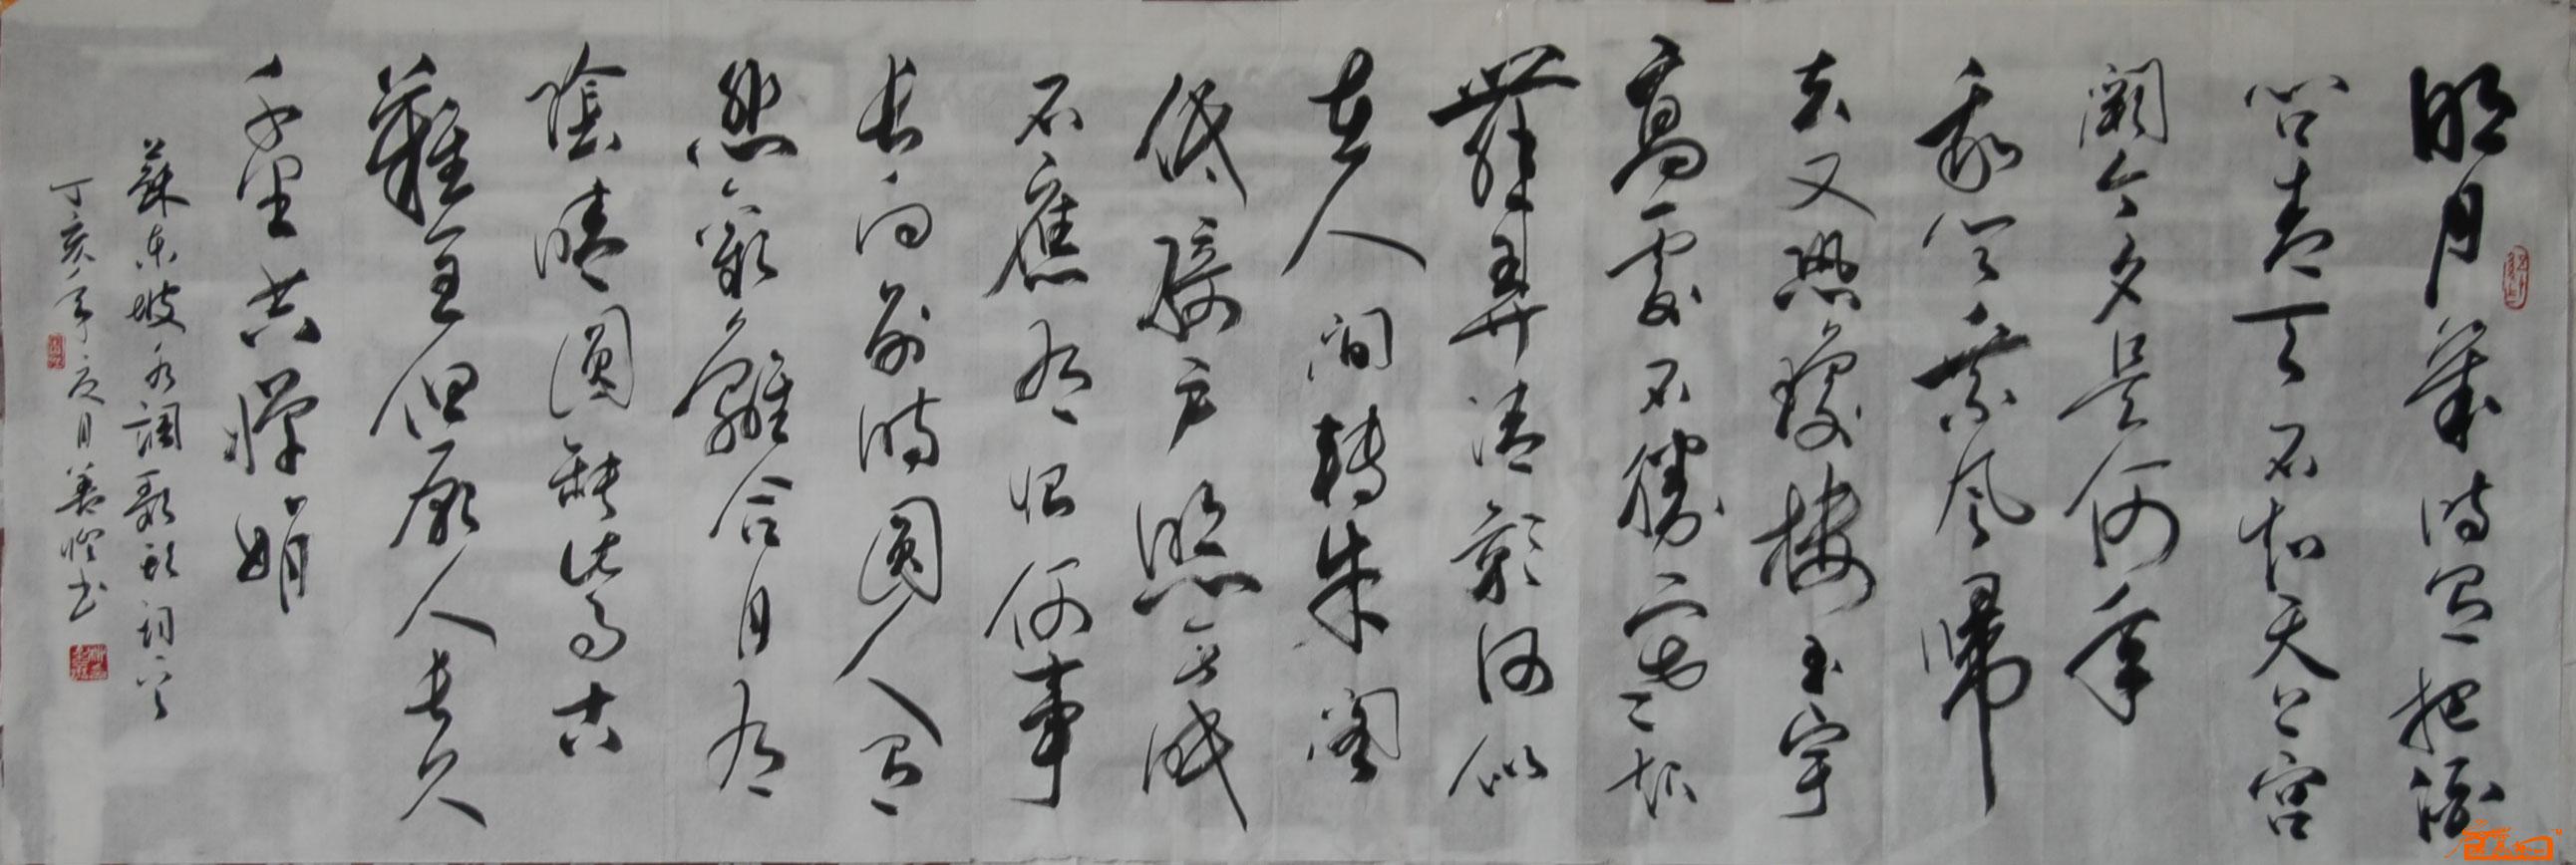 明月幾時有把酒
問青天不知天上宮
闕今夕是何年
我欲乘風歸
去又恐瓊樓玉宇
高處不勝寒起
舞弄清影何似
在人間轉朱閣
低綺戶照無眠
不應有恨何事
長向別時圓人有
悲歡離合月有
陰晴圓缺此事古
難全但願人長久
千里共嬋娟
蘇東坡水調歌頭詞一首
丁亥年 月善 書